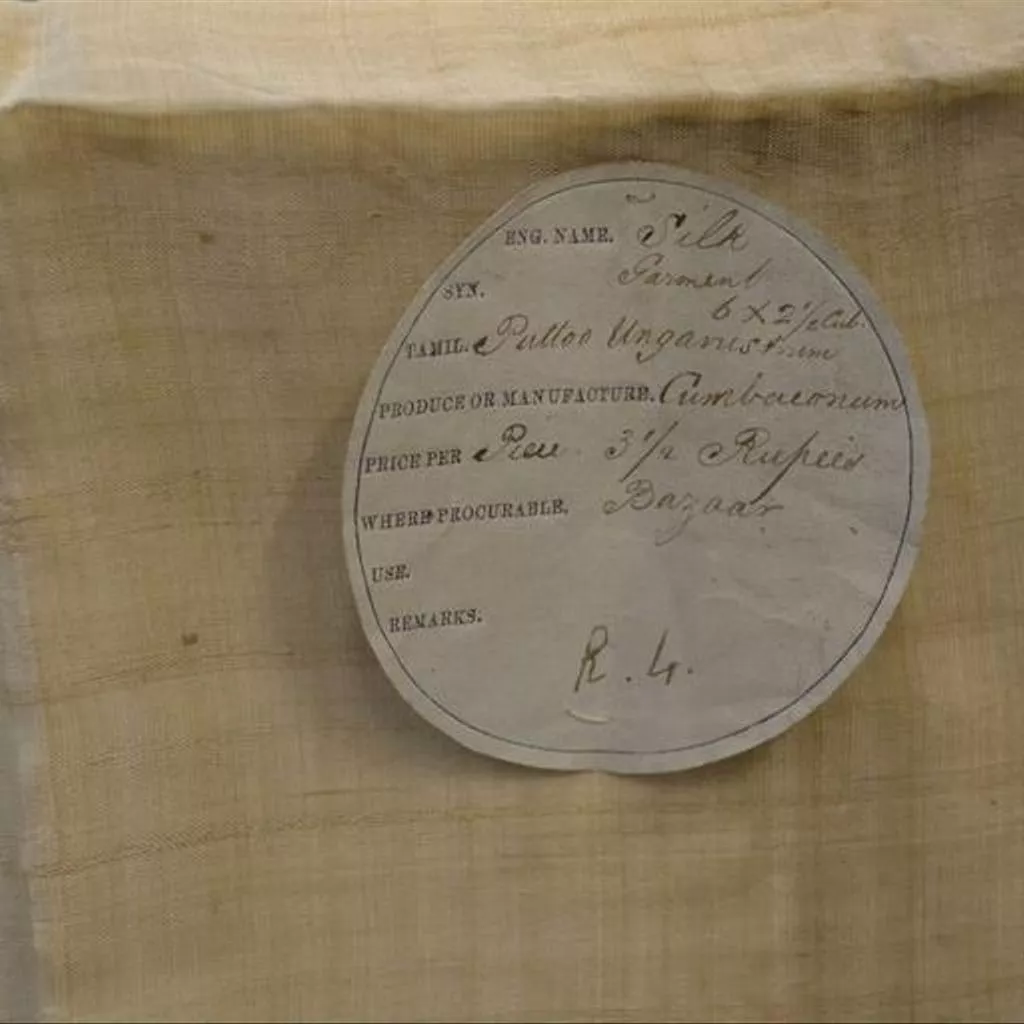 ENG. NAME. Silk
Garment
SYN.
6 X 2 1/2 Cub.
TAMIL. Puttoo Ungavustrum
PRODUCE OR MANUFACTURE. Cumbaconum
PRICE PER Piece 3 1/2 Rupees
WHERE PROCURABLE. Bazaar
USE.
REMARKS.
R. 4.